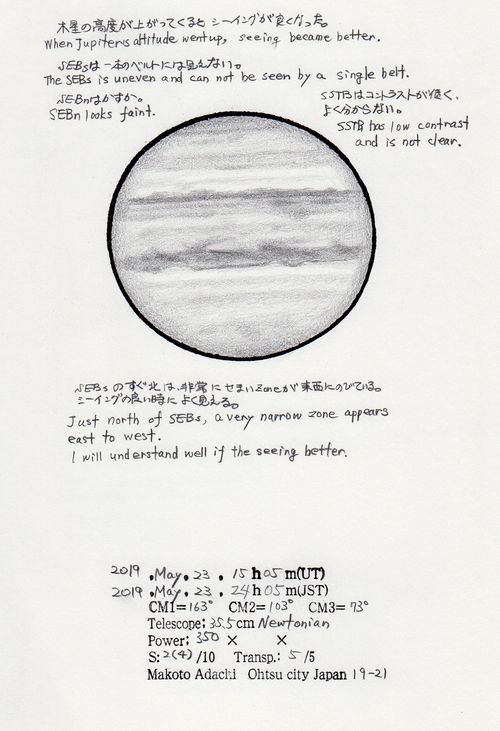 木星の高度が上がってくると シーイングが良くなった。
When Jupiter's altitude went up, seeing became better.
SEBsは 一本のベルトには見えない。
The SEBs is uneven and can not be seen by a single belt.
SEBnはかすか。
SEBn looks faint.
SSTBはコントラストが低く、
よく分からない。
SSTB has low contrast
and is not clear.
SEBs のすぐ北は、非常に せまい zoneが 東西にのびている。
シーイングの良い時に よく見える。
Just north of SEBs, a very narrow zone appears
east to west.
I will understand well if the seeing better.
2019 . May . 23 . 15 h 05 m(UT)
2019 . May . 23 . 24 h 05 m(JST)
CM1= 163° CM2= 103° CM3= 73°
Telescope: 35.5cm Newtonian
Power: 350 × ×
S: 2(4) /10 Transp.: 5 /5
Makoto Adachi Ohtsu city Japan 19-21